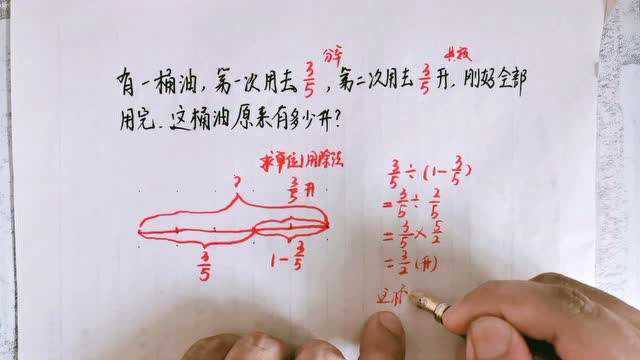 分率 数
有一桶油,第一次用去3/5,第二次用去3/5升,刚好全部
用完.这桶油原来有多少升?
求单位1用除法
?
3/5升
3/5
1-3/5
3/5÷(1-3/5)
=3/5÷2/5
=3/5×5/2
=3/2(升)
这